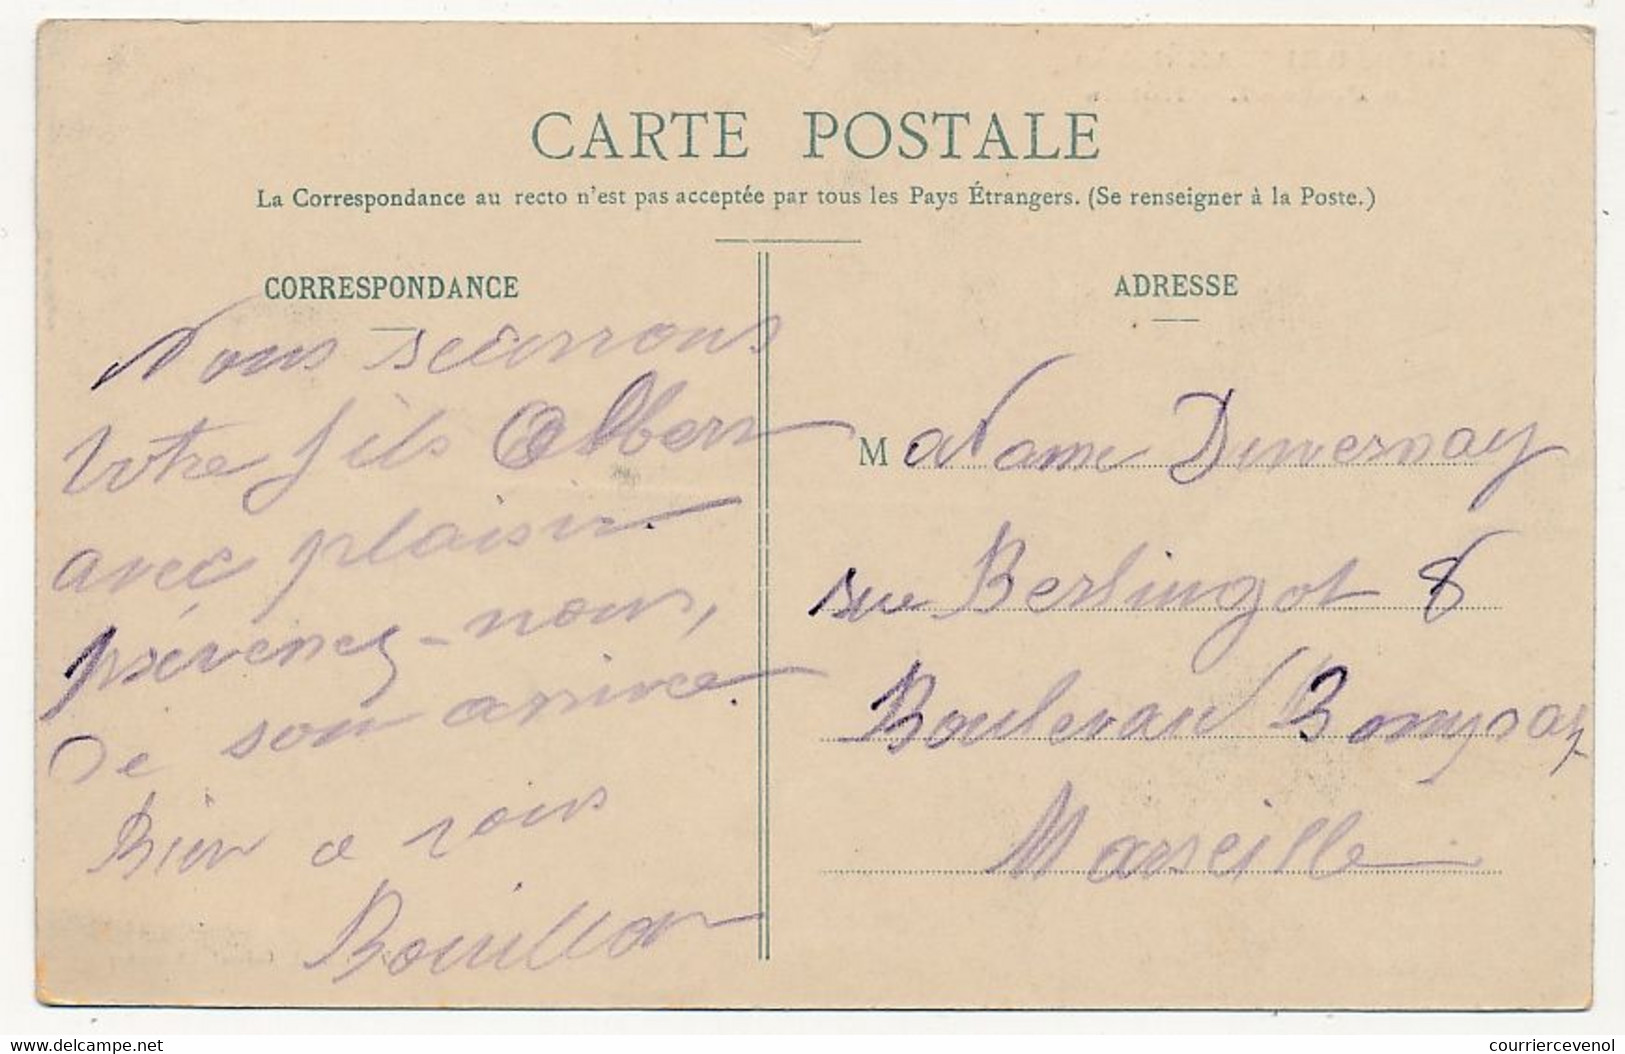 CARTE POSTALE
La Correspondance au recto n'est pas acceptée par tous les Pays Étrangers. (Se renseigner à la Poste.)
CORRESPONDANCE
Nous
votre fils Albert
avec plaisir.
prévenez-nous,
De son arrivée.
Bien a vous
Bouillon
ADRESSE
Madame Duvernay
rue Berlingot 8
Boulevard
Marseille
delcampe.net
courriercevenol